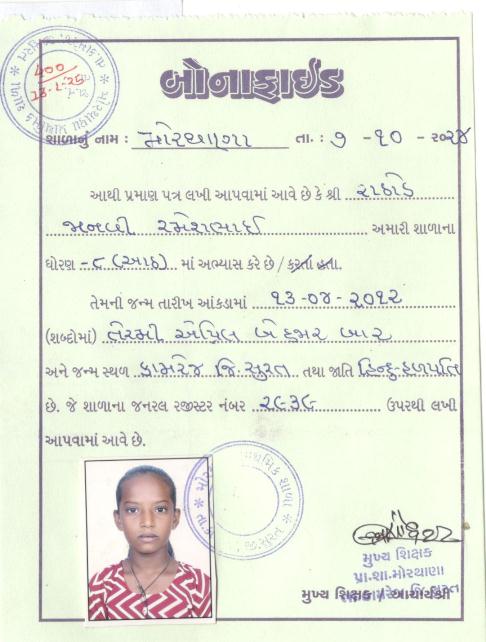 બોનાફાઈડ
400
શાળાનું નામ : મોરથાણા તા. : ૭ -૧૦ - ૨૦૨૪
આથી પ્રમાણ પત્ર લખી આપવામાં આવે છે કે શ્રી રાઠોડ
જાનવી રમેશભાઈ અમારી શાળાના
ધોરણ - ૮ (આઠ) માં અભ્યાસ કરે છે / કરતા હતા.
તેમની જન્મ તારીખ આંકડામાં ૧૩-૦૪-૨૦૧૨
(શબ્દોમાં) તેરમી એપ્રિલ બે હજાર બાર
અને જન્મ સ્થળ કામરેજ જિ. સુરત તથા જાતિ હિન્દુ-હળપતિ
છે. જે શાળાના જનરલ રજીસ્ટર નંબર ૨૯૩૯ ઉપરથી લખી
આપવામાં આવે છે.
મુખ્ય શિક્ષક
પ્રા.શા.મોરથાણા
મુખ્ય શિક્ષક / આચાર્યશ્રી